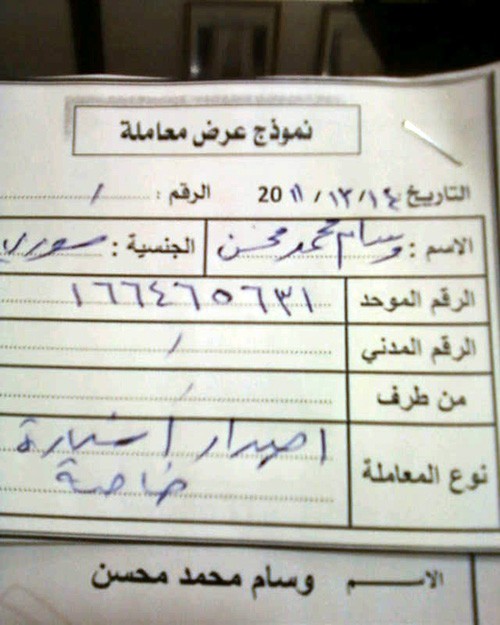 نموذج عرض معاملة
التاريخ ١٤ / ١٢ / ٢٠١١ الرقم : /
الاسم : وسام محمد محسن الجنسية : سوري
الرقم الموحد ١٦٦٤٦٥٦٣١
الرقم المدني /
من طرف /
نوع المعاملة اصدار استمارة
خاصة
الاســـم وسام محمد محسن